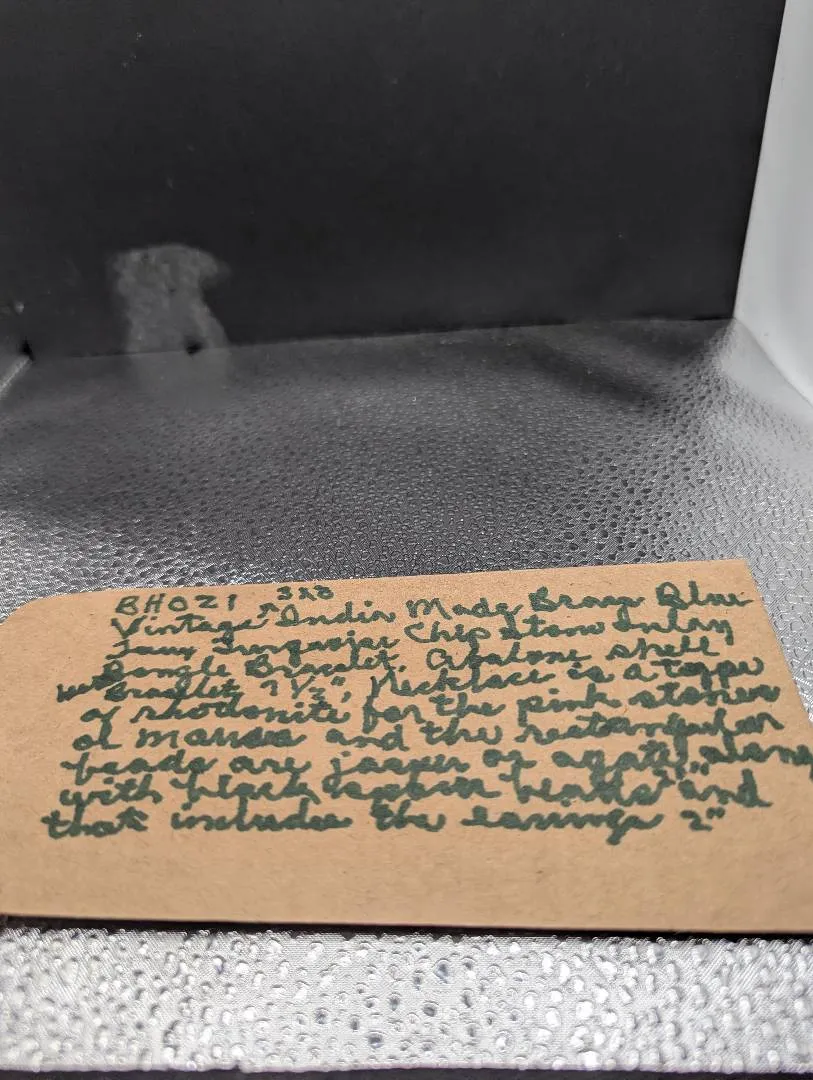 BH021 320
Vintage India Made Brass Blue
Faux Turquoise Chip stone Inlay
Bangle Bracelet. Abalone shell
Bracelet 7 1/2", Necklace is a type
of rhodonite for the pink stones
or and the rectangular
beads are jasper or agate along
with black beads and
that includes the earrings 2"